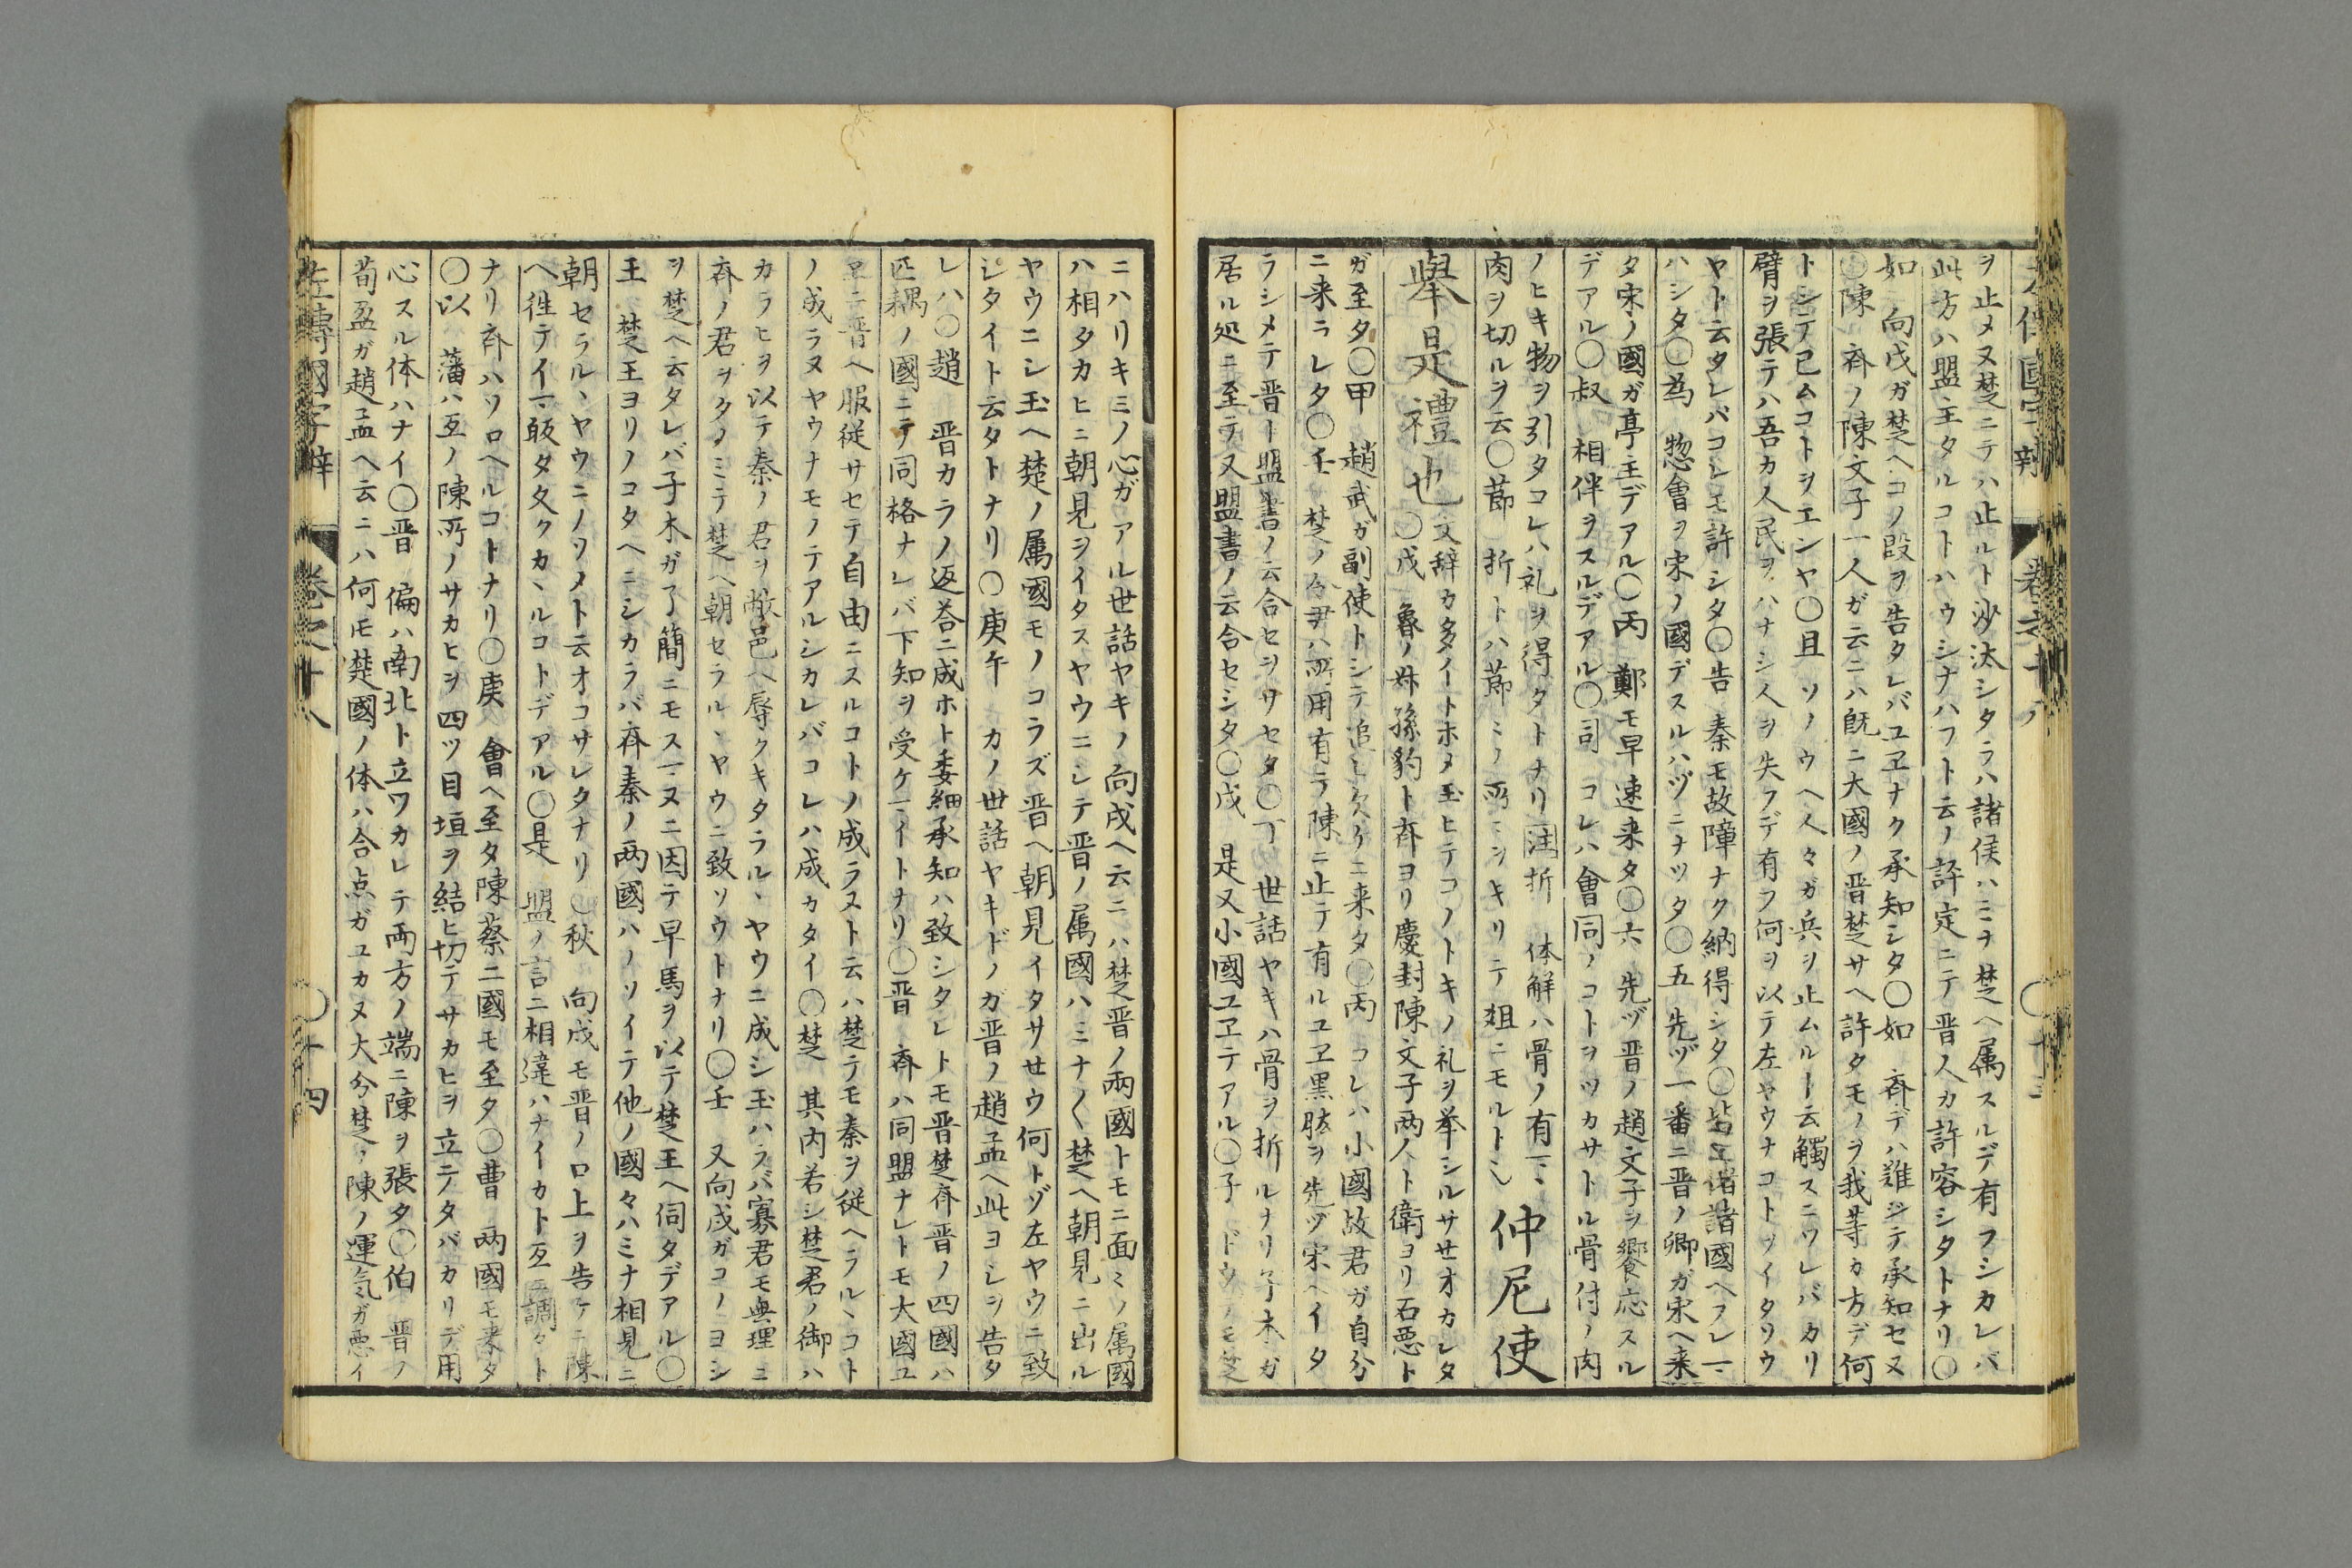 ヲ止メヌ楚ニテハ止ルト沙汰シタラハ諸侯ハミナ楚ヘ属スルデ有フシカレバ
此方ハ盟主タルコトハウシナハフト云ノ評定ニテ晋人カ許容シタトナリ〇
如 向戌ガ楚ヘコノ段ヲ告タレバユヱナク承知シタ〇如 斉デハ難シテ承知セヌ
〇陳 斉ノ陳文子一人ガ云ニハ既ニ大國ノ晋楚サヘ許タモノヲ我等カ方デ何
トシテ已ムコトヲエンヤ〇且 ソノウヘ人々ガ兵ヲ止ムルト云觸スニワレバカリ
臂ヲ張テハ吾カ人民ヲハナシ人ヲ失フデ有フ何ヲ以テ左ヤウナコトヲイタソウ
ヤト云タレバコレモ許シタ〇告 秦モ故障ナク納得シタ〇皆 諸國ヘフレ
ハシタ〇為 惣會ヲ宋ノ國デスルハヅニナツタ〇五 先ヅ一番ニ晋ノ卿ガ宋ヘ来
タ宋ノ國ガ亭主デアル〇丙 鄭モ早速来タ〇六 先ヅ晋ノ趙文子ヲ饗応スル
デアル〇叔 相伴ヲスルデアル〇司 コレハ會同ノコトヲツカサトル骨付ノ肉
ノヒキ物ヲ引タコレハ礼ヲ得タトナリ注折 体解ハ骨ノ有
肉ヲ切ルヲ云〇節 折トハ節ミノ所ミンキリテ俎ニモルトシ
仲尼使
擧是禮也
〇文辞カ多イトホメ玉ヒテコノトキノ礼ヲ挙シルサセオカレタ
〇戊 魯ノ叔孫豹ト斉ヨリ慶封陳文子两人ト衛ヨリ石悪ト
ガ至タ〇甲 趙武ガ副使トシテ追シ欠ケニ来タ〇丙 コレハ小國故君ガ自分
ニ来ラレタ〇壬 楚ノ令尹ハ所用有テ陳ニ止テ有ルユヱ黒肱ヲ先ヅ宋ヘイタ
ラシメテ晋ト盟書ノ云合セヲサセタ〇丁 世話ヤキハ骨ヲ折ルナリ子木ガ
居ル処ニ至テ又盟書ノ云合セシタ〇戊 是又小國ユヱテアル〇子 ドウ
ニハリキミノ心ガアル世話ヤキノ向戌ヘ云ニハ楚晋ノ两國トモニ面ミノ属國
ハ相タカヒニ朝見ヲイタスヤウニシテ晋ノ属國ハミナ〱楚ヘ朝見ニ出ル
ヤウニシ玉ヘ楚ノ属國モノコラズ晋ヘ朝見イタサセウ何トゾ左ヤウニ致
シタイト云タトナリ〇庚午 カノ世話ヤキドノガ晋ノ趙孟ヘ此ヨシヲ告タ
レハ〇趙 晋カラノ返答ニ成ホト委細承知ハ致シタレトモ晋楚斉晋ノ四國ハ
匹耦ノ國ニテ同格ナレバ下知ヲ受ケイトナリ〇晋 斉ハ同盟ナレトモ大國ユ
早ニ晋ヘ服従サセテ自由ニスルコトノ成ラヌト云ハ楚テモ秦ヲ従ヘラル、コト
ノ成ラヌヤウナモノテアルシカレバコレハ成カタイ〇楚 其内若シ楚君ノ御ハ
カラヒヲ以テ秦ノ君ヲ敝邑ヘ辱クキタラル、ヤウニ成シ玉ハラバ寡君モ無理ニ
斉ノ君ヲタノミテ楚ヘ朝セラル、ヤウニ致ソウトナリ〇壬 又向戌ガコノヨシ
ヲ楚ヘ云タレバ子木ガ了簡ニモスヌニ因テ早馬ヲ以テ楚王ヘ伺タデアル〇
王 楚王ヨリノコタヘニシカラバ斉秦ノ两國ハノソイテ他ノ國々ハミナ相見ニ
朝セラル、ヤウニノソメト云オコサレタナリ〇秋 向戌モ晋ノ口上ヲ告ケニ陳
ヘ徃テイ皈タ攵クカ、ルコトデアル〇是 盟ノ言ニ相違ハナイカト互ニ調タト
ナリ斉ハソロヘルコトナリ〇庚 會ヘ至タ陳蔡二國モ至タ〇曹 两國モ来タ
〇以 藩ハ互ノ陳所ノサカヒヲ四ツ目垣ヲ結ヒ切テサカヒヲ立ニタバカリデ用
心スル体ハナイ〇晋 偏ハ南北ト立ワカレテ両方ノ端ニ陳ヲ張タ〇伯 晋ノ
荀盈ガ趙孟ヘ云ニハ何モ楚國ノ体ハ合点ガユカヌ大分楚ノ陳ノ運気ガ悪イ
左傳國字辯 巻之十八 〇十四